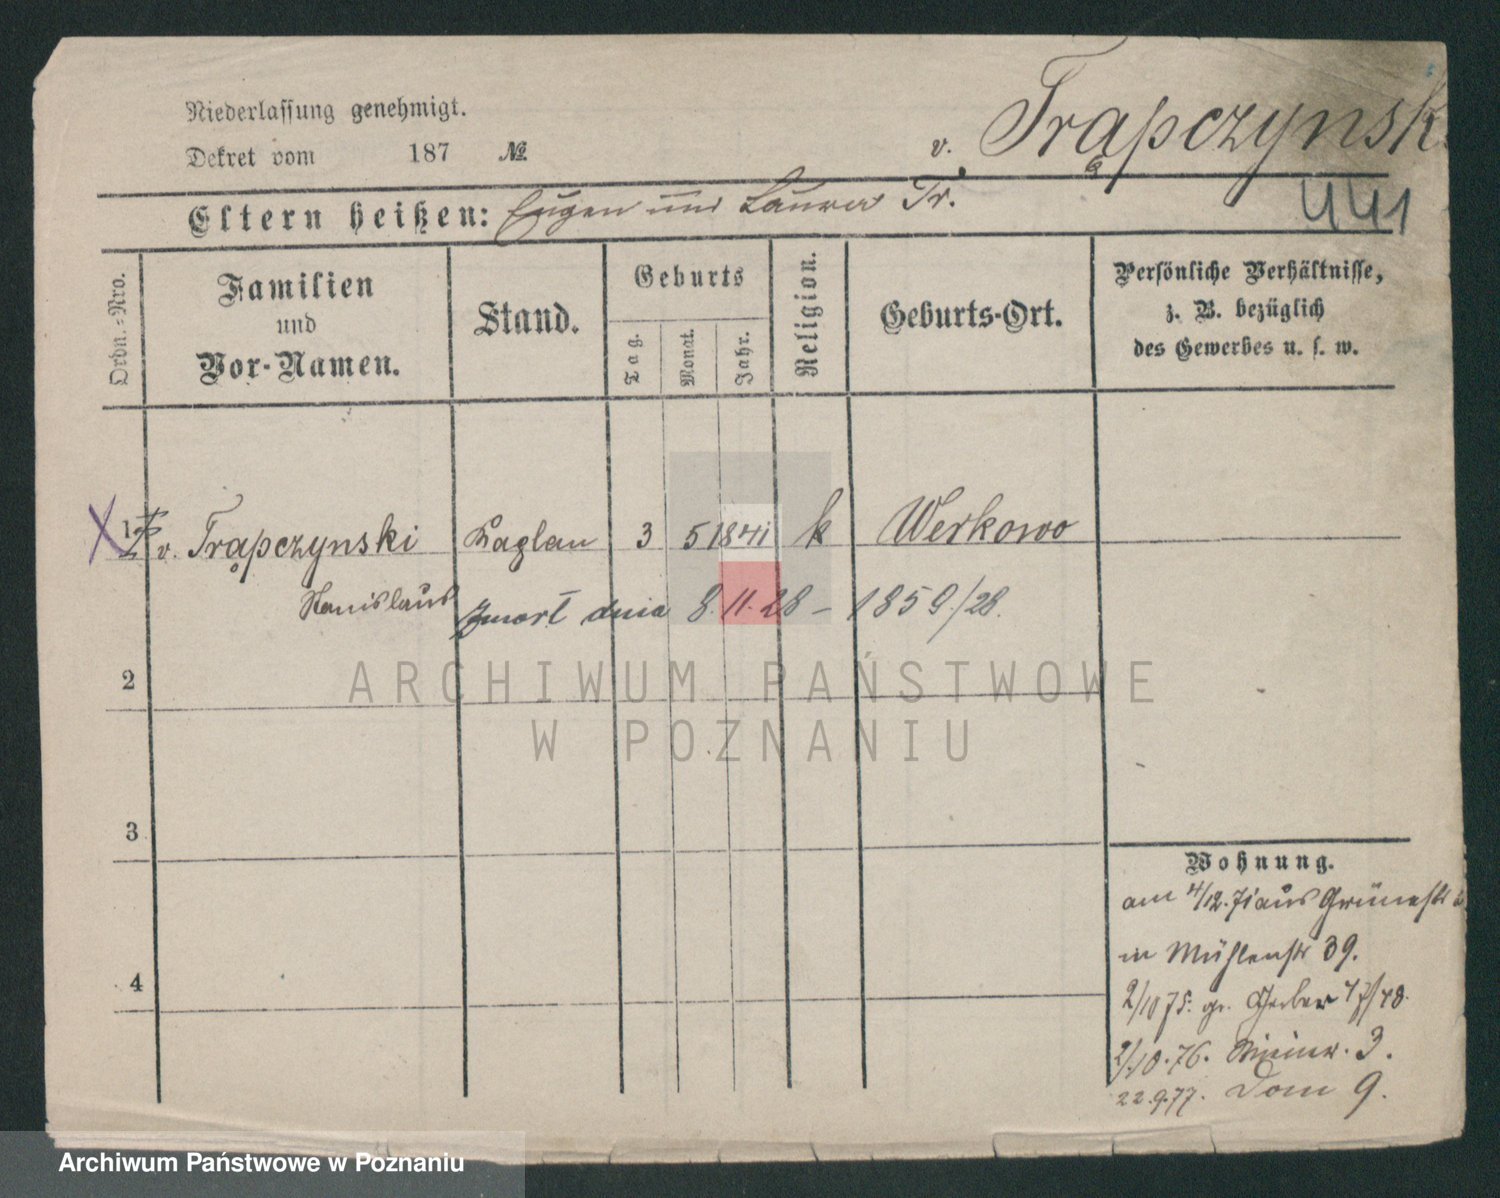 Niederlassung genehmigt.
v. Trąpczynsk
Dekret vom 187 №
Eltern heißen: Eugen und Laura Tr.
441
Ordn.-Nro.
Familien
und
Vor-Namen.
Stand.
Geburts
Tag.
Monat.
Jahr.
Religion.
Geburts-Ort.
Persönliche Verhältnisse,
z. B. bezüglich
des Gewerbes u. s. w.
X 1 v. Trąpczynski Kaplan 3 5 1841 k Werkowo
Stanislaus zmarł dnia 8.11.28 – 1859/28.
2
3
4
Wohnung.
am 4/12. 71 aus Grünestr
in Mühlenstr 39.
2/10 75. gr. Gerber 47/48.
2/10.76. 3.
22.9.77. Dom 9.
ARCHIWUM PAŃSTWOWE
W POZNANIU
Archiwum Państwowe w Poznaniu